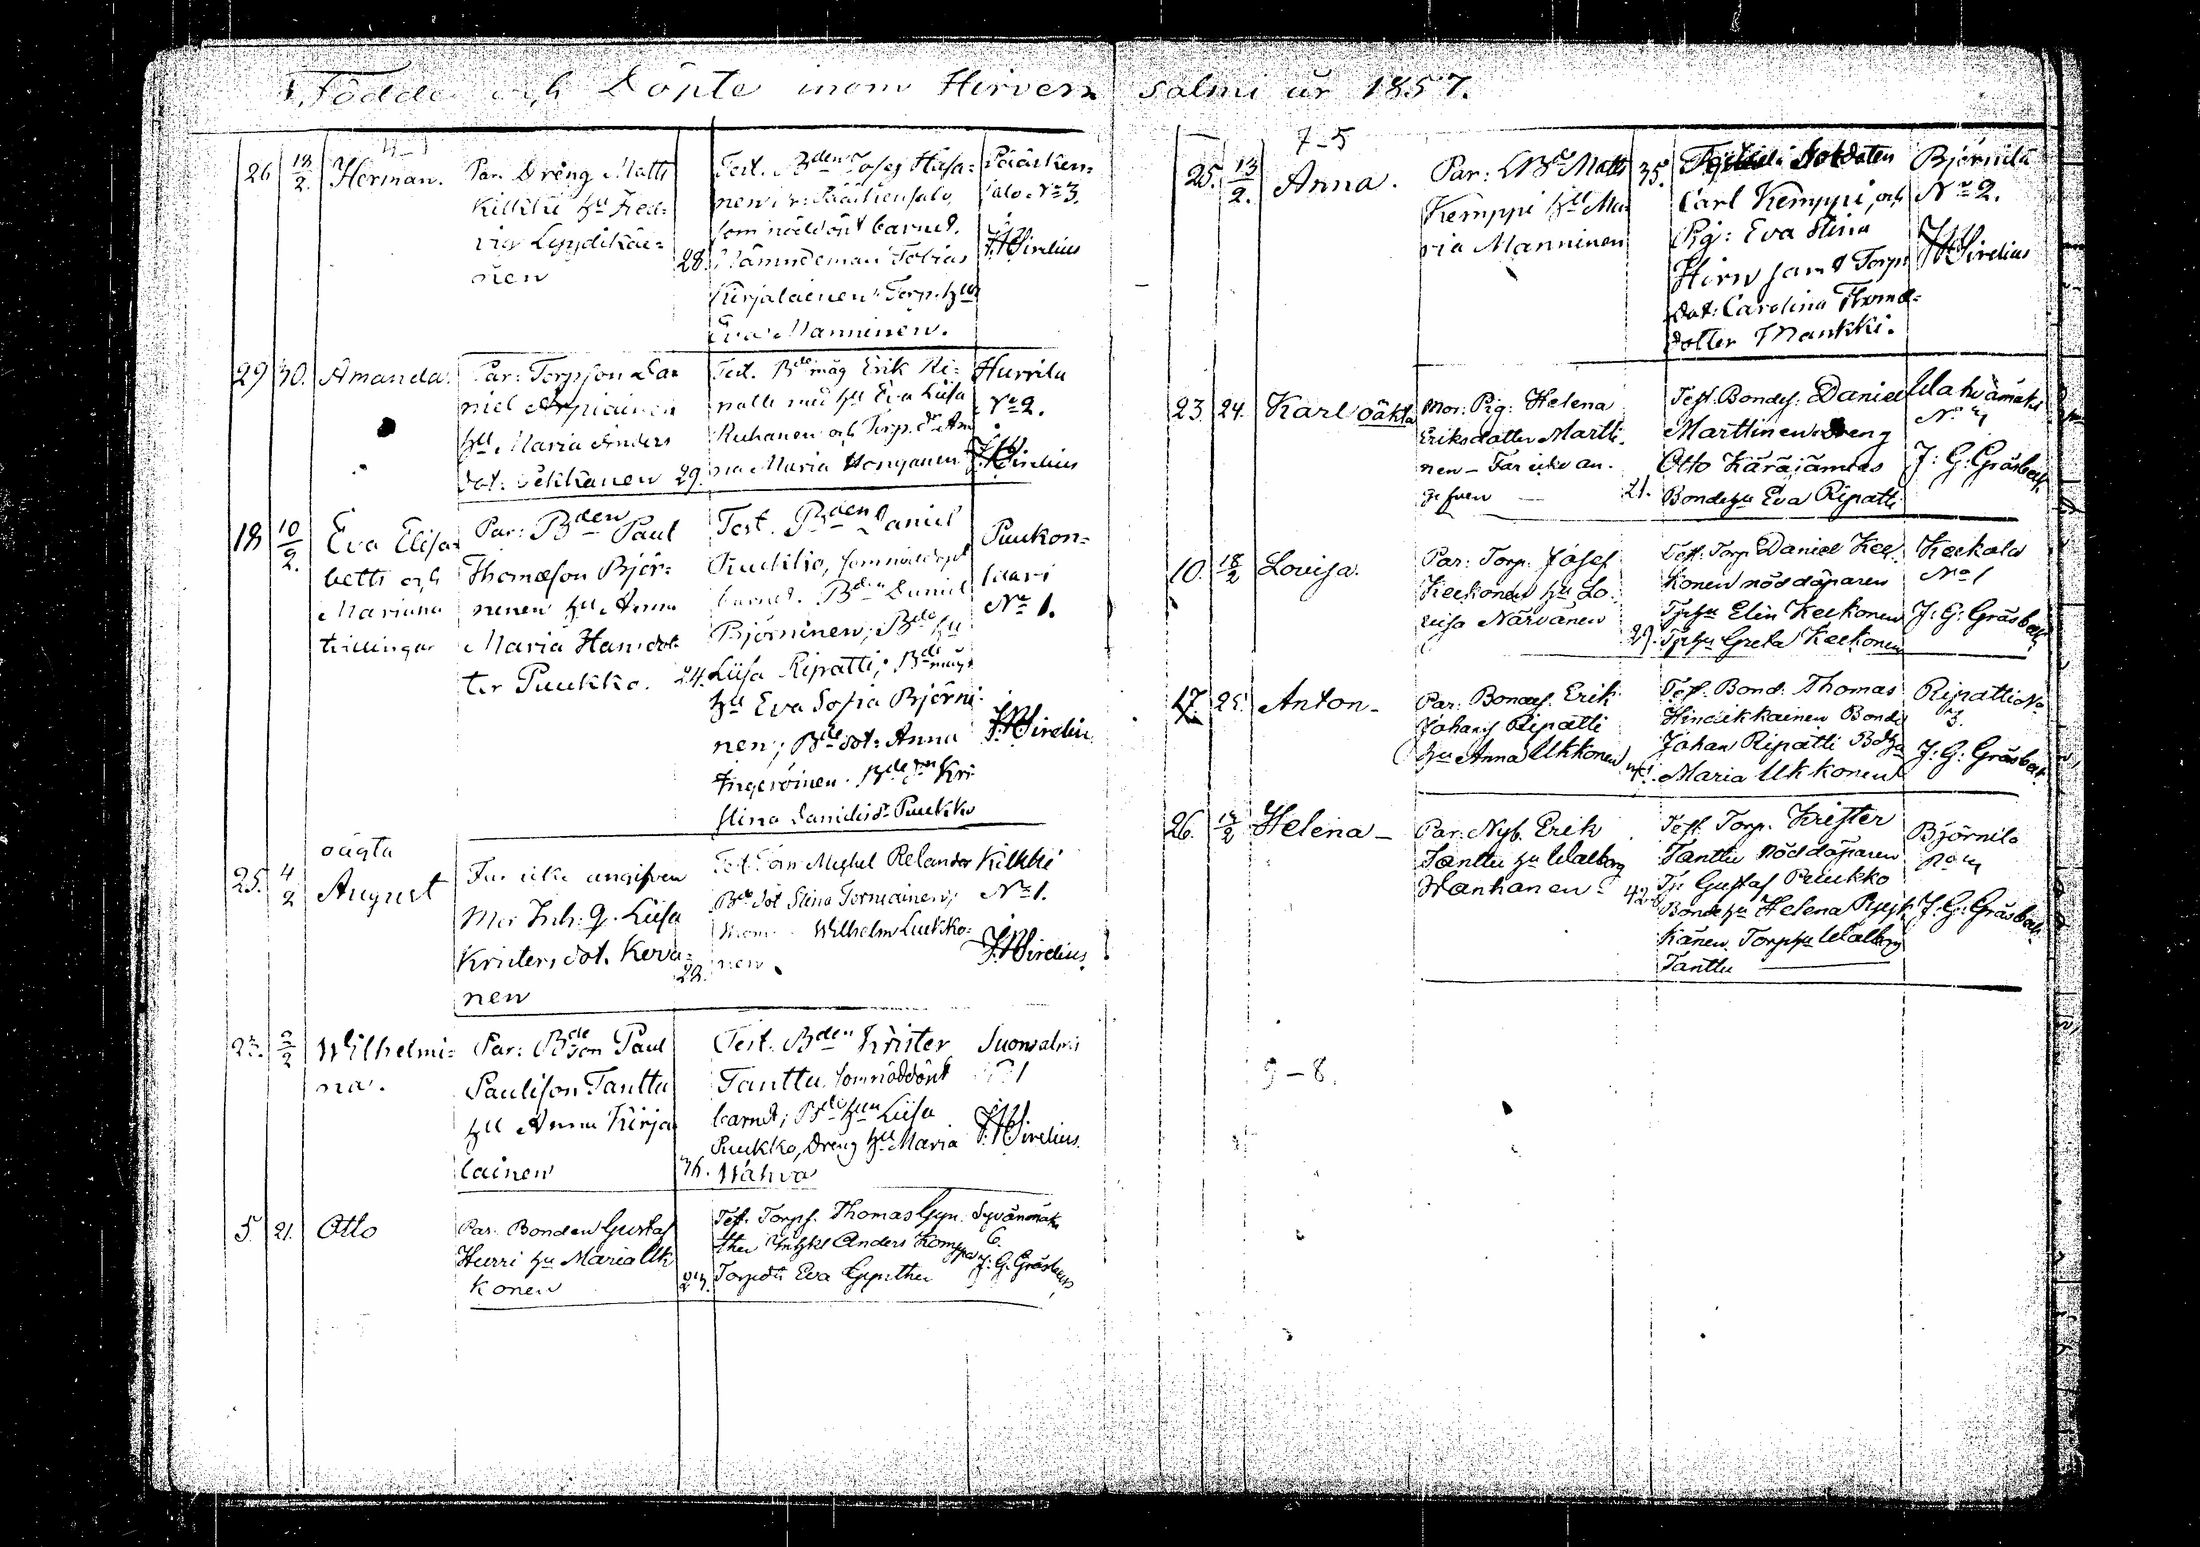 Födde och Döpte inom Hirven salmi år 1857.
26 18/2. Herman.
Par. Dräng Matts
Kilkki hu Hed=
vig Lyydikäi=
nen
28.
Test. Bden Josef Hasa=
nen i r: Pääskensalo,
som nöddöpt barnet.
Nämndeman Tobias
Kirjalainen. Torp. hu
Eva Manninen.
Pääsken=
salo No 3.
Sirelius
29 30. Amanda.
Par: Torpson Da=
niel
hu Maria Anders
dot. Pekkanen 29.
Test. Bde måg Erik Ri=
patti med hu Eva Liisa
Ruhanen och Torp. dr An
na Maria Honganen
Hurrila
No 2.
Sirelius
18 10/2. Eva Elisa=
beth och
Mariana
tvillingar
Par: Bden Paul
Thomæson Björ=
ninen hu Anna
Maria Hansdot
ter Puukko. 24.
Test. Bden Daniel
som nöddöpt
barnet. Bden Daniel
Björninen; Bde hu
Liisa Ripatti; Bde mågs
hu Eva Sofia Björni
nen; Bde dot: Anna
Ingeroinen. Bde hu Kri
stina Danielsdr Puukko
Puukon=
saari
No 1.
Sirelius
oägta
25. 4/2 August
Far icke angifven
Mor Inh. q. Liisa
Kristersdot. Kerva=
nen
28.
Test. Michel Relander
Bde dot Stina Tarmainen;
Wilhelm Luukko=
nen
Kilkki
No 1.
Sirelius.
23. 2/2 Wilhelmi=
na.
Par: Bde son Paul
Paulison Tanttu
hu Anna Kirja
lainen
36.
Test. Bden Krister
Tanttu, som nöddöpt
barnet; Bde hun Liisa
Puukko, Dräng hu Maria
Wahva
Suonsalmi
1
Sirelius.
5. 21. Otto
Par. Bonden Gustaf
Hurri hu Maria Uk
konen
Test. Torps. Thomas Gyn.
ther Anders Komppa
Torpdtr Eva Gynther
Syvänmäki
6.
J. G. Gråsbeck
7-5
25. 13/2. Anna.
Par: Bde Matts
Kemppi hu Ma
ria Manninen
35.
Soldaten
Carl Kemppi, och
Pig: Eva Stina
Hirv samt Torp
dot: Carolina Thomæ=
dotter Mankki.
Björnila
No 2.
Sirelius
23. 24. Karl oäkta
Mor: Pig: Helena
Eriksdotter Martti.
nen – Far icke an.
gifven — 21.
Test. Bondes. Daniel
Marttinen Dreng
Otto Käräjämies
Bondehu Eva Ripatti
Wahvamäki
No 4
J: G: Gråsbeck
10. 18/2 Lovisa.
Par: Torp. Josef
Keekonen hu Lo.
viisa Närvänen
29.
Test. Torp Daniel Kee.
konen nöddöparen
Tprhu Elin Keekonen
Tprhu Greta Keekonen
Keekola
No 1
J: G: Gråsbeck
17. 25. Anton –
Par. Bondes. Erik
Johans Ripatti
hu Anna Ukkonen
Test. Bond. Thomas
Hinaikkainen Bonde
Johan Ripatti Bdhu
Maria Ukkonen
Ripatti No
3.
J: G: Gråsbeck
26. 12/2 Helena –
Par: Nyb. Erik
Tanttu hu Walborg
Wanhanen
42.
Test. Torp. Krister
Tanttu nöddöparen
Tp: Gustaf Puukko
Bondehu Helena Pyyk
känen. Torphu Walborg
Tanttu
Björnilä
No 4
J: G: Gråsbeck
9-8.